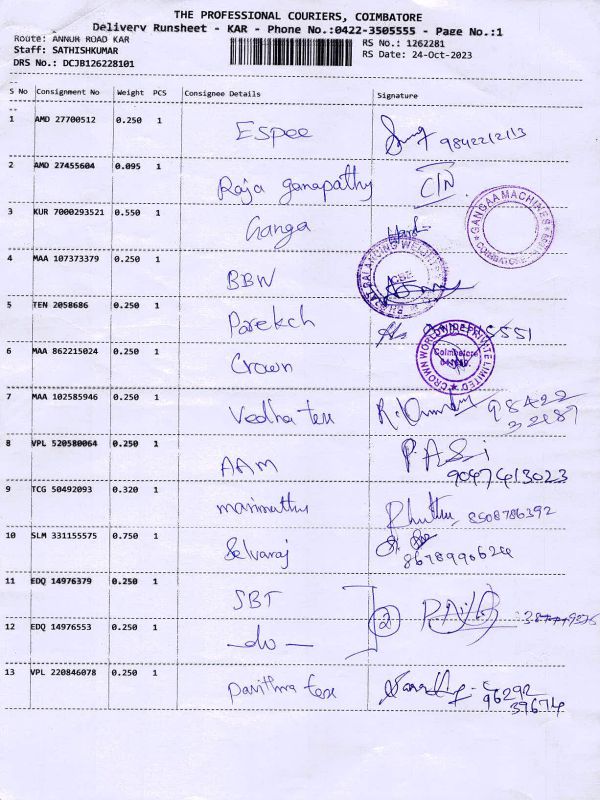 THE PROFESSIONAL COURIERS, COIMBATORE
Delivery Runsheet - KAR - Phone No.:0422-3505555 - Page No.:1
Route: ANNUR ROAD KAR
RS No.: 1262281
Staff: SATHISHKUMAR
RS Date: 24-Oct-2023
DRS No.: DCJB126228101
S No Consignment No Weight PCS Consignee Details Signature
1 AMD 27700512 0.250 1 Espee 9842212113
2 AMD 27455604 0.095 1 Raja ganapathy
3 KUR 7000293521 0.550 1 Ganga GANGAA MACHINES
4 MAA 107373379 0.250 1 BBW
5 TEN 2058686 0.250 1 Parekch
6 MAA 862215024 0.250 1 Crown CROWN WORLDWIDE PRIVATE LIMITED Coimbatore
7 MAA 102585946 0.250 1 Vedha tex 98422
8 VPL 520580064 0.250 1 AAM 9047413023
9 TCG 50492093 0.320 1 marimuthu 8508786392
10 SLM 331155575 0.750 1 Selvaraj 8678990624
11 EDQ 14976379 0.250 1 SBT
12 EDQ 14976553 0.250 1 -do- 2
13 VPL 220846078 0.250 1 Pavithra tex 96292
39674